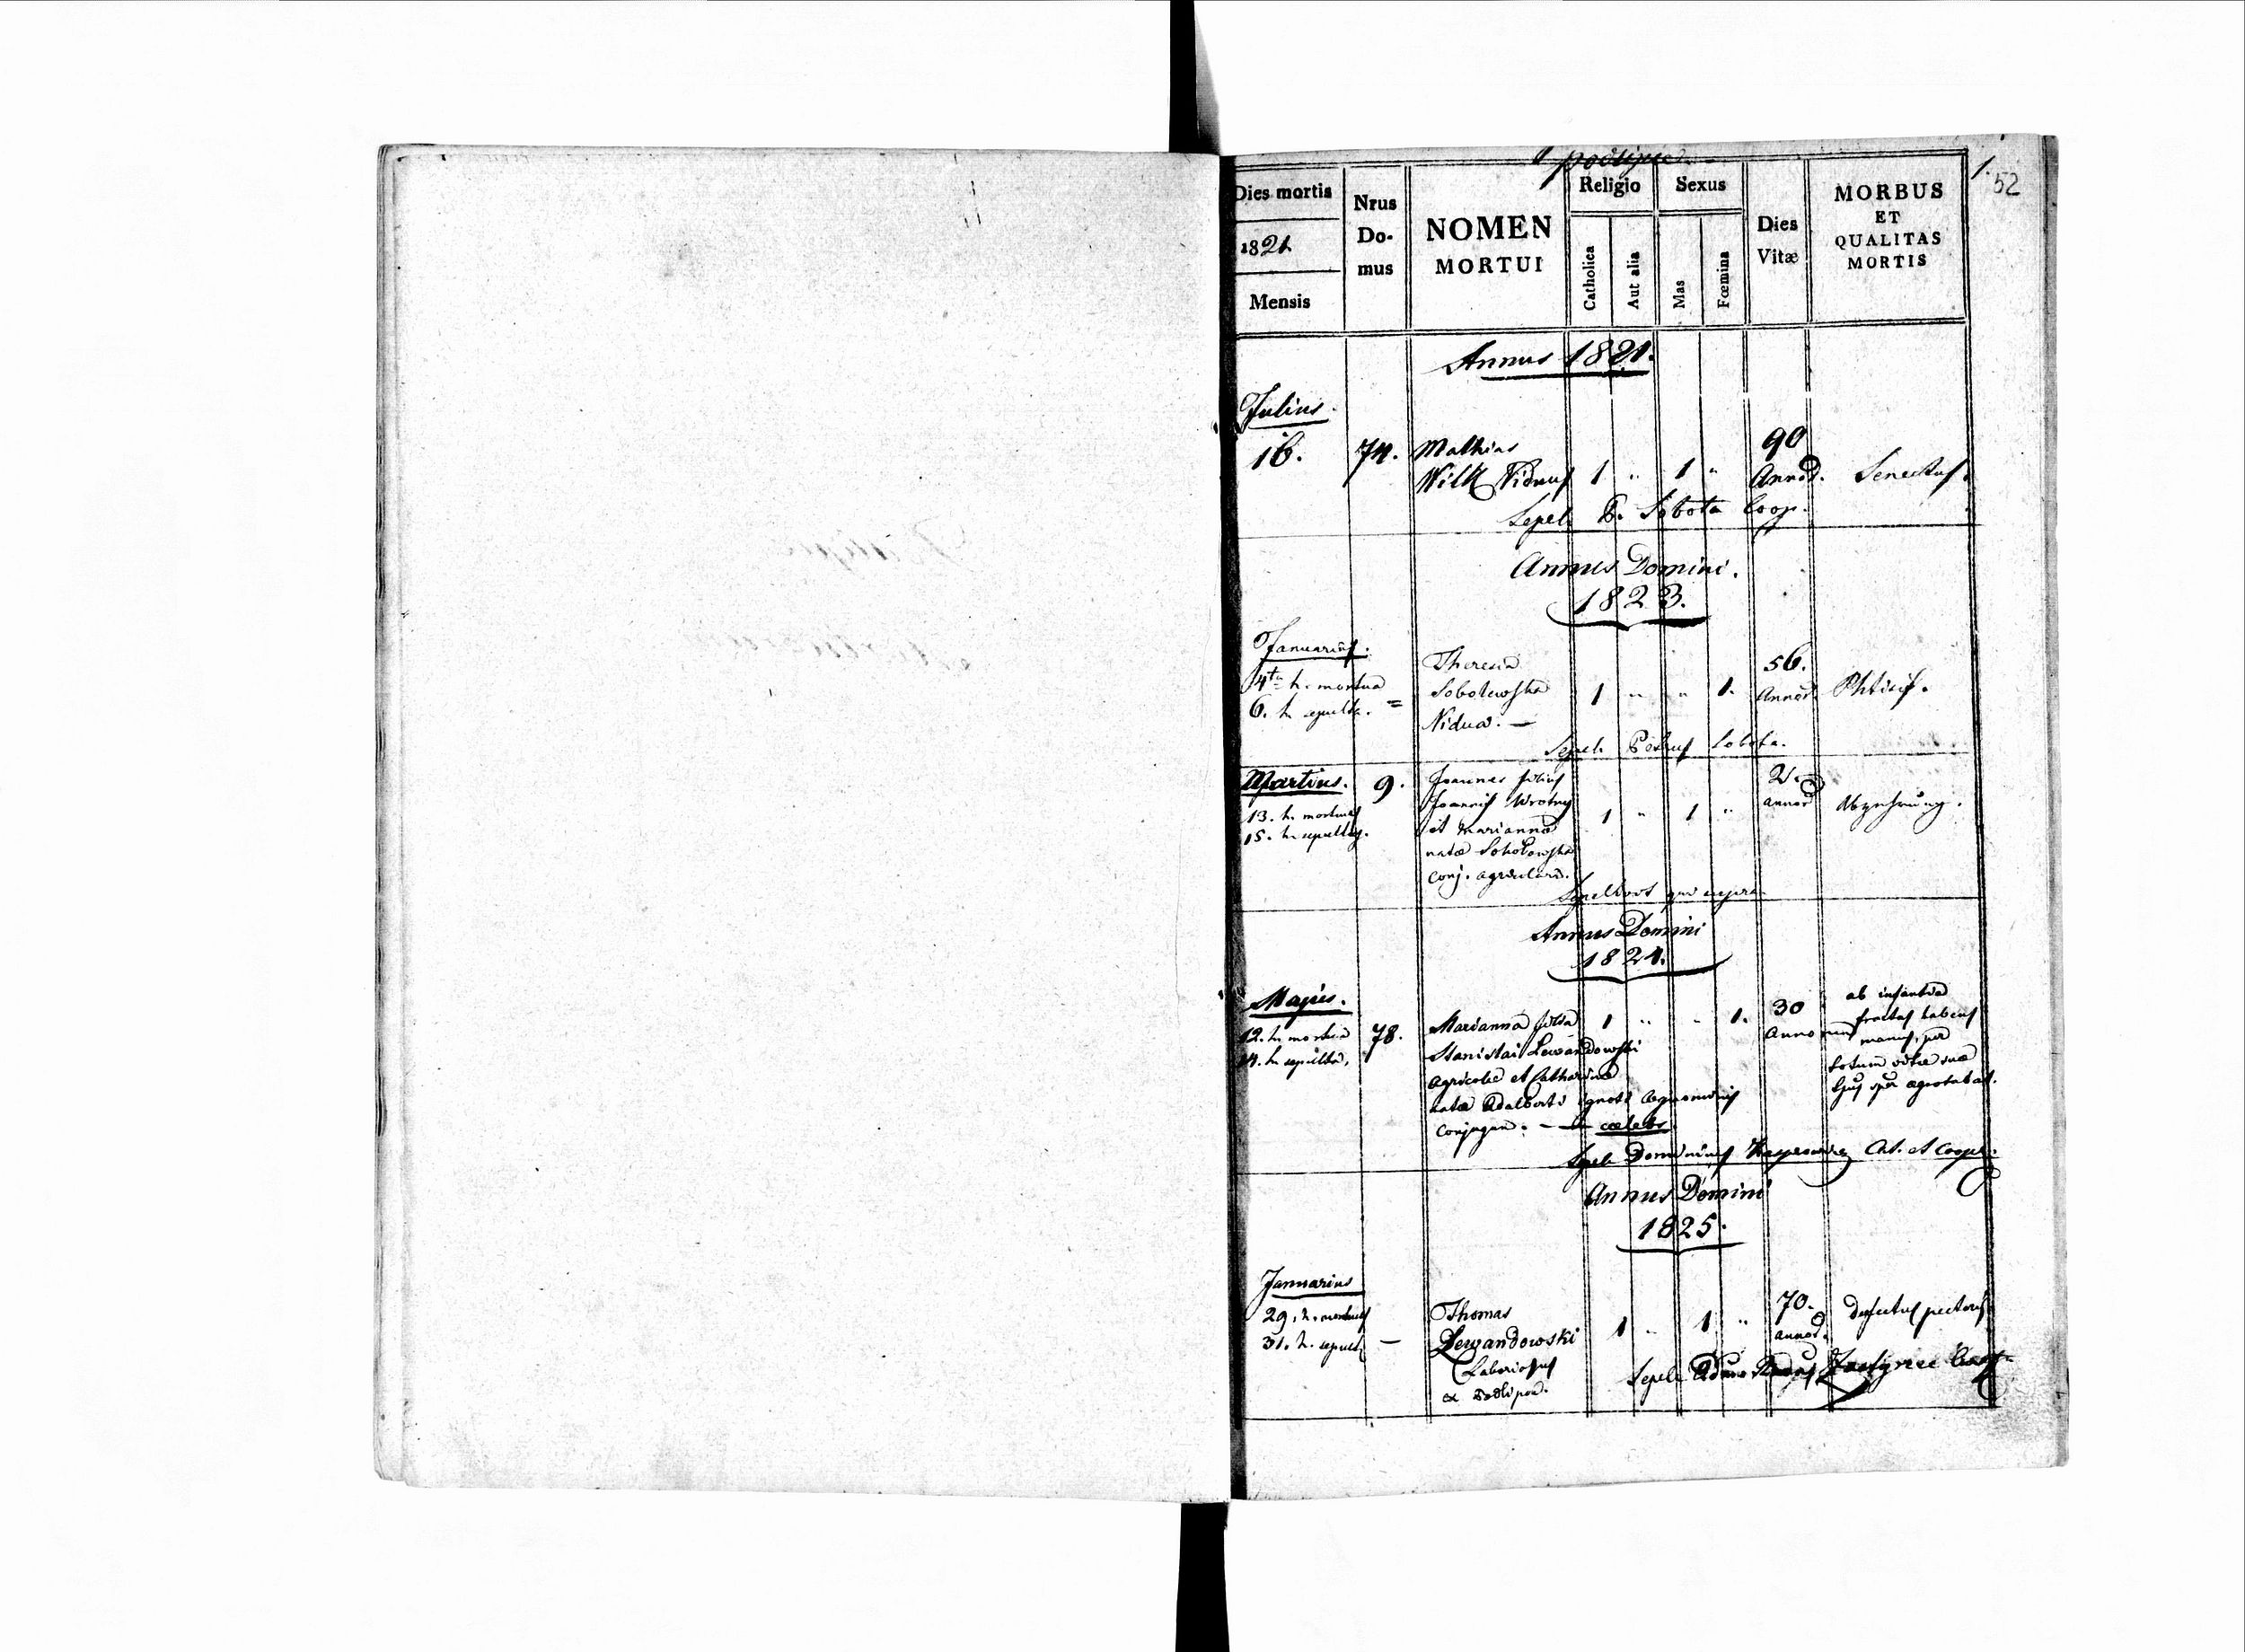 podlipie
1.
52
Dies mortis
1821
Mensis
Nrus
Do-
mus
NOMEN
MORTUI
Religio
Catholica
Aut alia
Sexus
Mas
Fœmina
Dies
Vitæ
MORBUS
ET
QUALITAS
MORTIS
Annus 1821.
Julius.
16. 74. Mathias 90
Wilk Viduus 1 " 1 " Annor. Senectus.
Sepel. P. Sobota Coop.
Annus Domini.
1823.
Januarius.
4ta h. mortua Theresia 56.
6. h. sepulta. = Sobolewska 1 " " 1. Annor. Phtisis.
Vidua. —
Sepel. Petrus Sobota.
Martius. 9. Joannes filius 2.
13. h. mortuus Joannis Wrotny 1 " 1 " annor. Abzehrung.
15. h. sepultus. et Marianna
nata Sokołowska
conj. agricolar.
Sepelivit qui supra
Annus Domini
1824.
Majus.
12. h. mortua 78. Marianna filia 1 " - 1. 30 ab infantia
14. h. sepulta. Stanislai Lewandowski Annorum fractas habens
agricolae et Catharina manus, per
nata Adalberti ignoti cognominis totum vitae suae
conjugum. — caelebs. egrotabat.
Sepel. Dominicus Cat. et Coop.
Annus Domini
1825.
Januarius
29. h. mortuus Thomas 70. defectus pectoris
31. h. sepult. — Lewandowski 1 " 1 " annor.
Laboriosus
ex Podlipie.
Sepel.